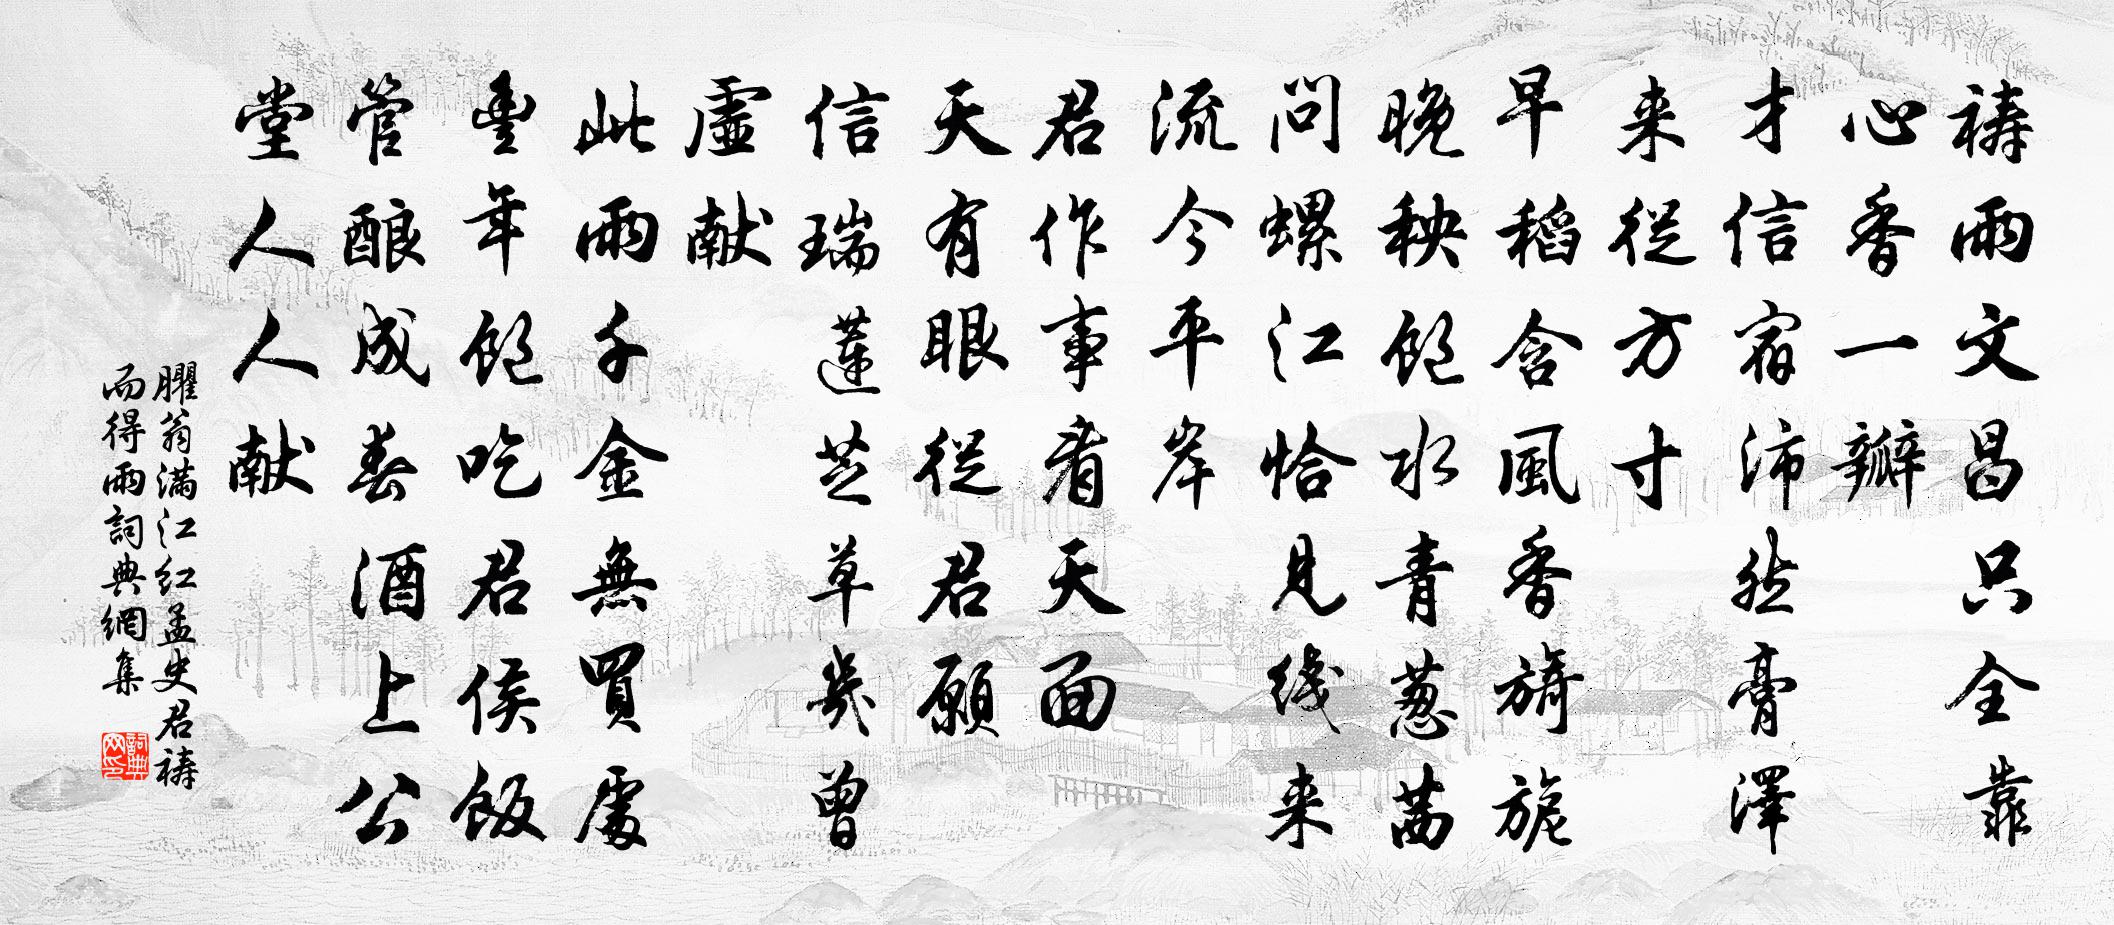 祷雨文昌只全靠
心香一瓣
才信宿沛然膏澤
来従方寸
早稻含風香旖旎
晚秧飽水青葱茜
問螺江恰見线来
流今平岸
君作事看天面
天有眼従君願
信瑞莲芝草幾曾
虛献
此雨千金無買處
豊年飽吃君侯飯
管酿成春酒上公
堂人人献
臞翁满江红孟史君祷
而得雨詞典網集
詞典网印